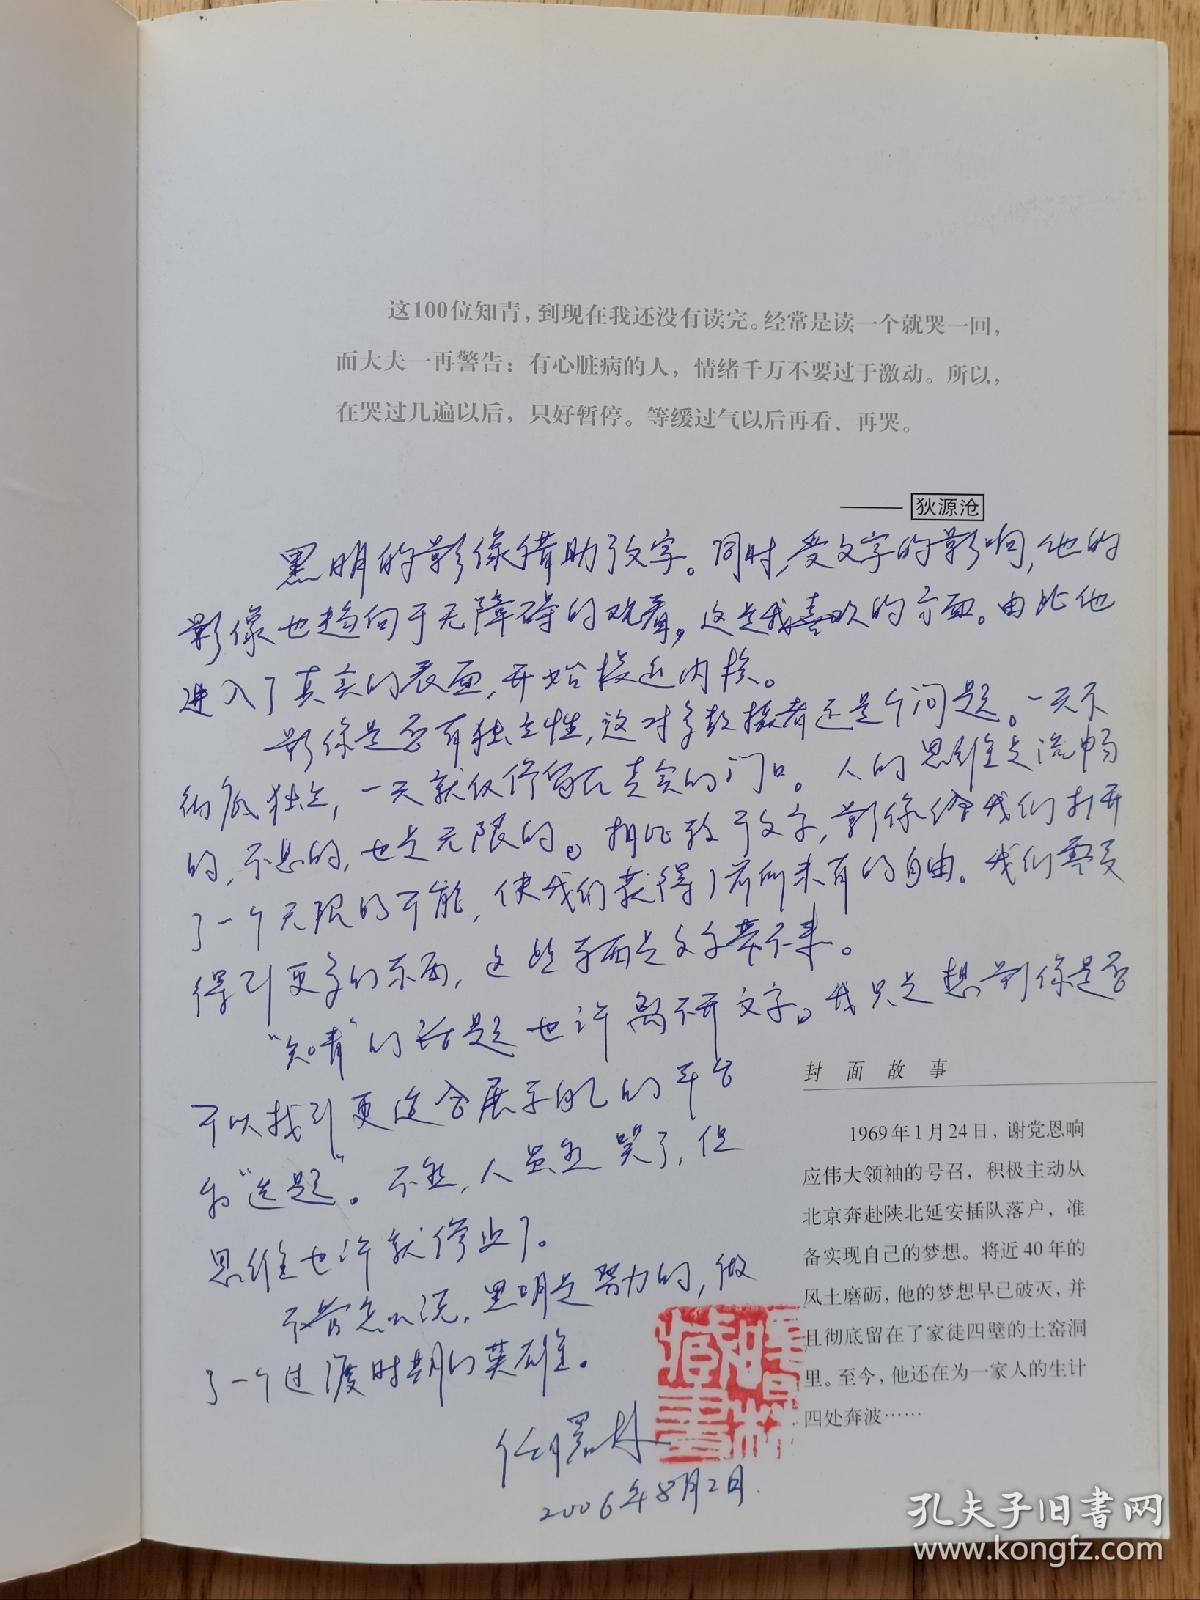 这100位知青，到现在我还没有读完。经常是读一个就哭一回，
而大夫一再警告：有心脏病的人，情绪千万不要过于激动。所以，
在哭过几遍以后，只好暂停。等缓过气以后再看、再哭。
——狄源沧
黑明的影像借助了文字。同时，受文字的影响，他的
影像也趋向于无障碍的观看。这是我喜欢的方面。由此他
进入了真实的表面，开始接近内核。
影像是否有独立性，这对多数摄者还是个问题。一天不
彻底独立，一天就仅停留在真实的门口。人的思维是流畅
的，不息的，也是无限的。相比较于文字，影像给我们打开
了一个无限的可能，使我们获得了前所未有的自由。我们需要
得到更多的东西，这些东西是文字带不来。
“知青”的话题也许离不开文字。我只是想影像是否
可以找到更适合展示自己的平台
的“选题”。不然，人虽然哭了，但
思维也许就停止了。
不管怎么说，黑明是努力的，做
了一个过渡时期的英雄。
任曙林
2006年8月2日
封面故事
1969年1月24日，谢党恩响
应伟大领袖的号召，积极主动从
北京奔赴陕北延安插队落户，准
备实现自己的梦想。将近40年的
风土磨砺，他的梦想早已破灭，并
且彻底留在了家徒四壁的土窑洞
里。至今，他还在为一家人的生计
四处奔波……
孔夫子旧书网
www.kongfz.com